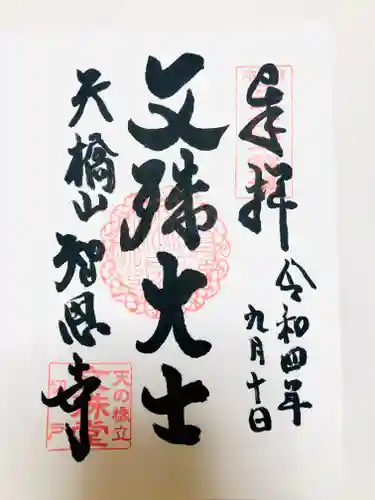 奉拝
令和四年
九月十日
文殊大士
天橋山
智恩寺
天の橋立
文殊堂
切戸